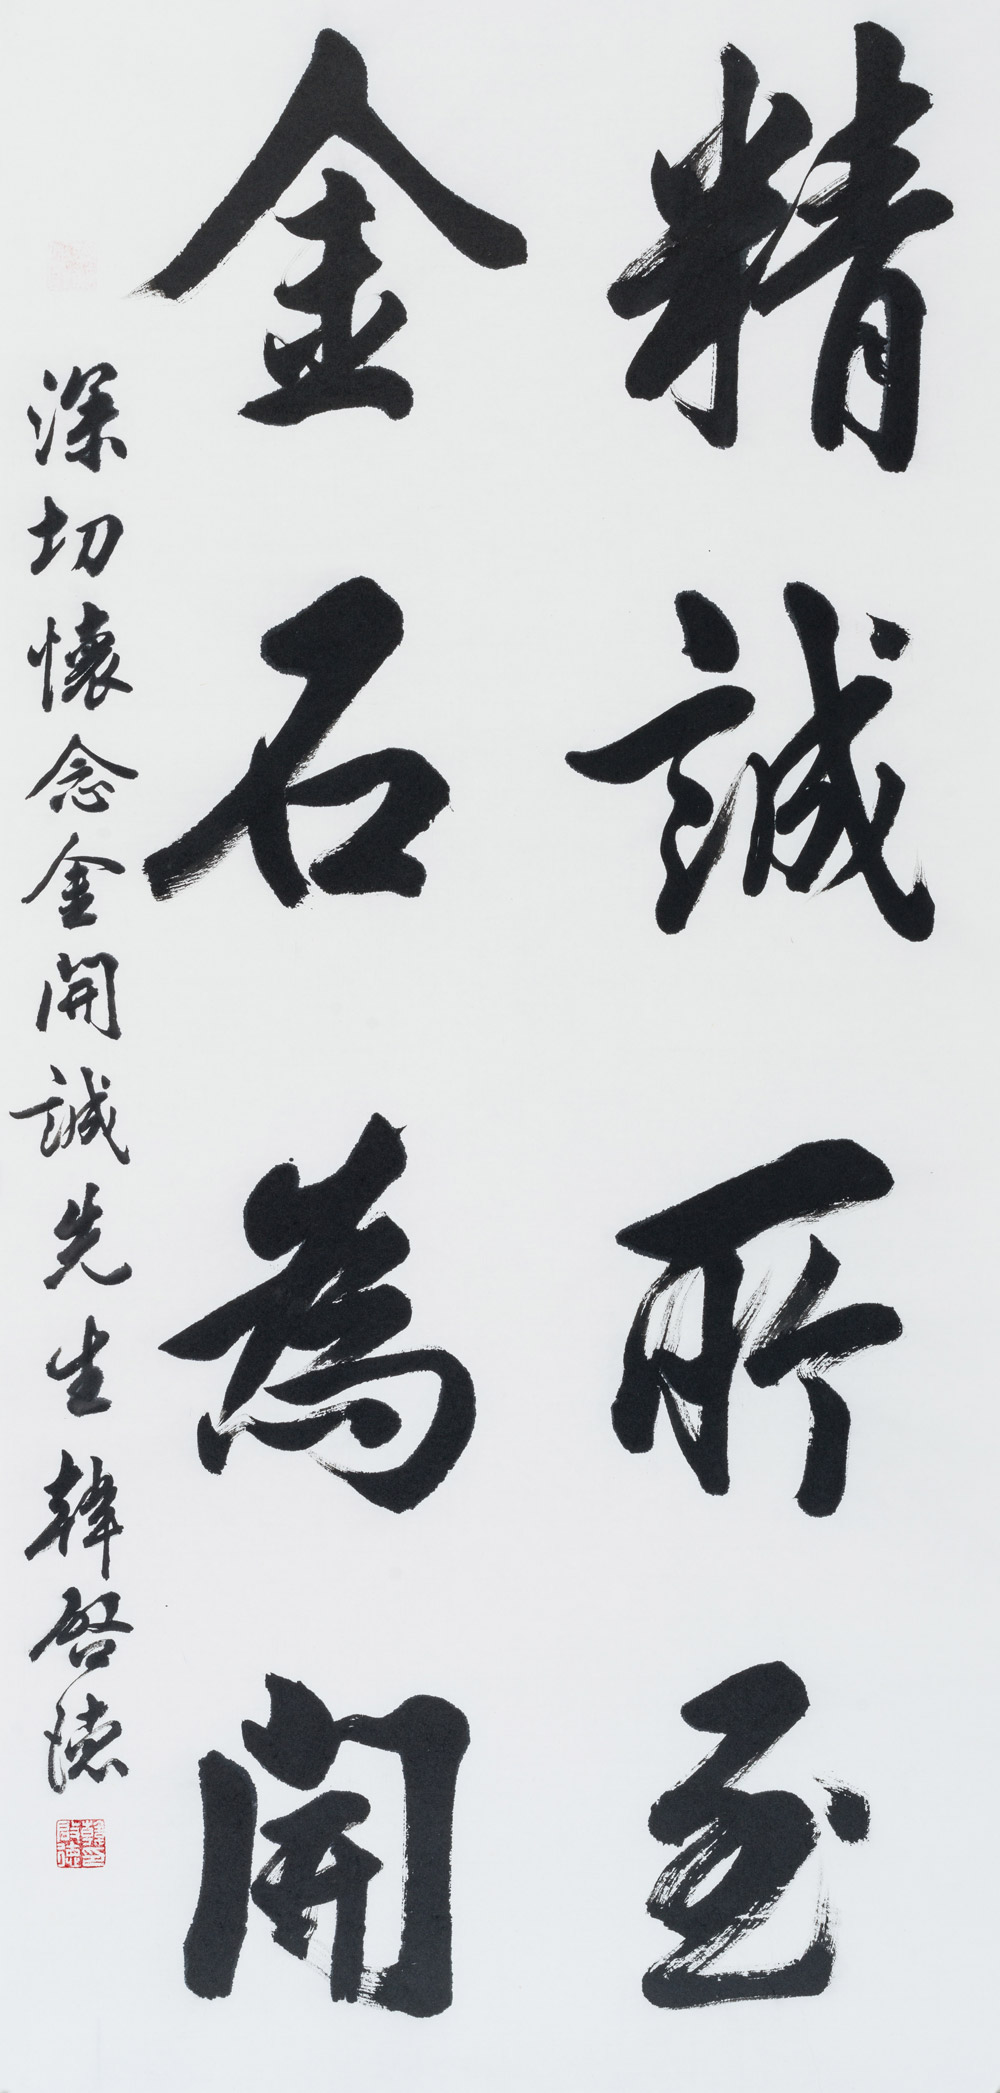 精誠所至
金石為開
深切懷念金開誠先生韓啓德
韓啟德印